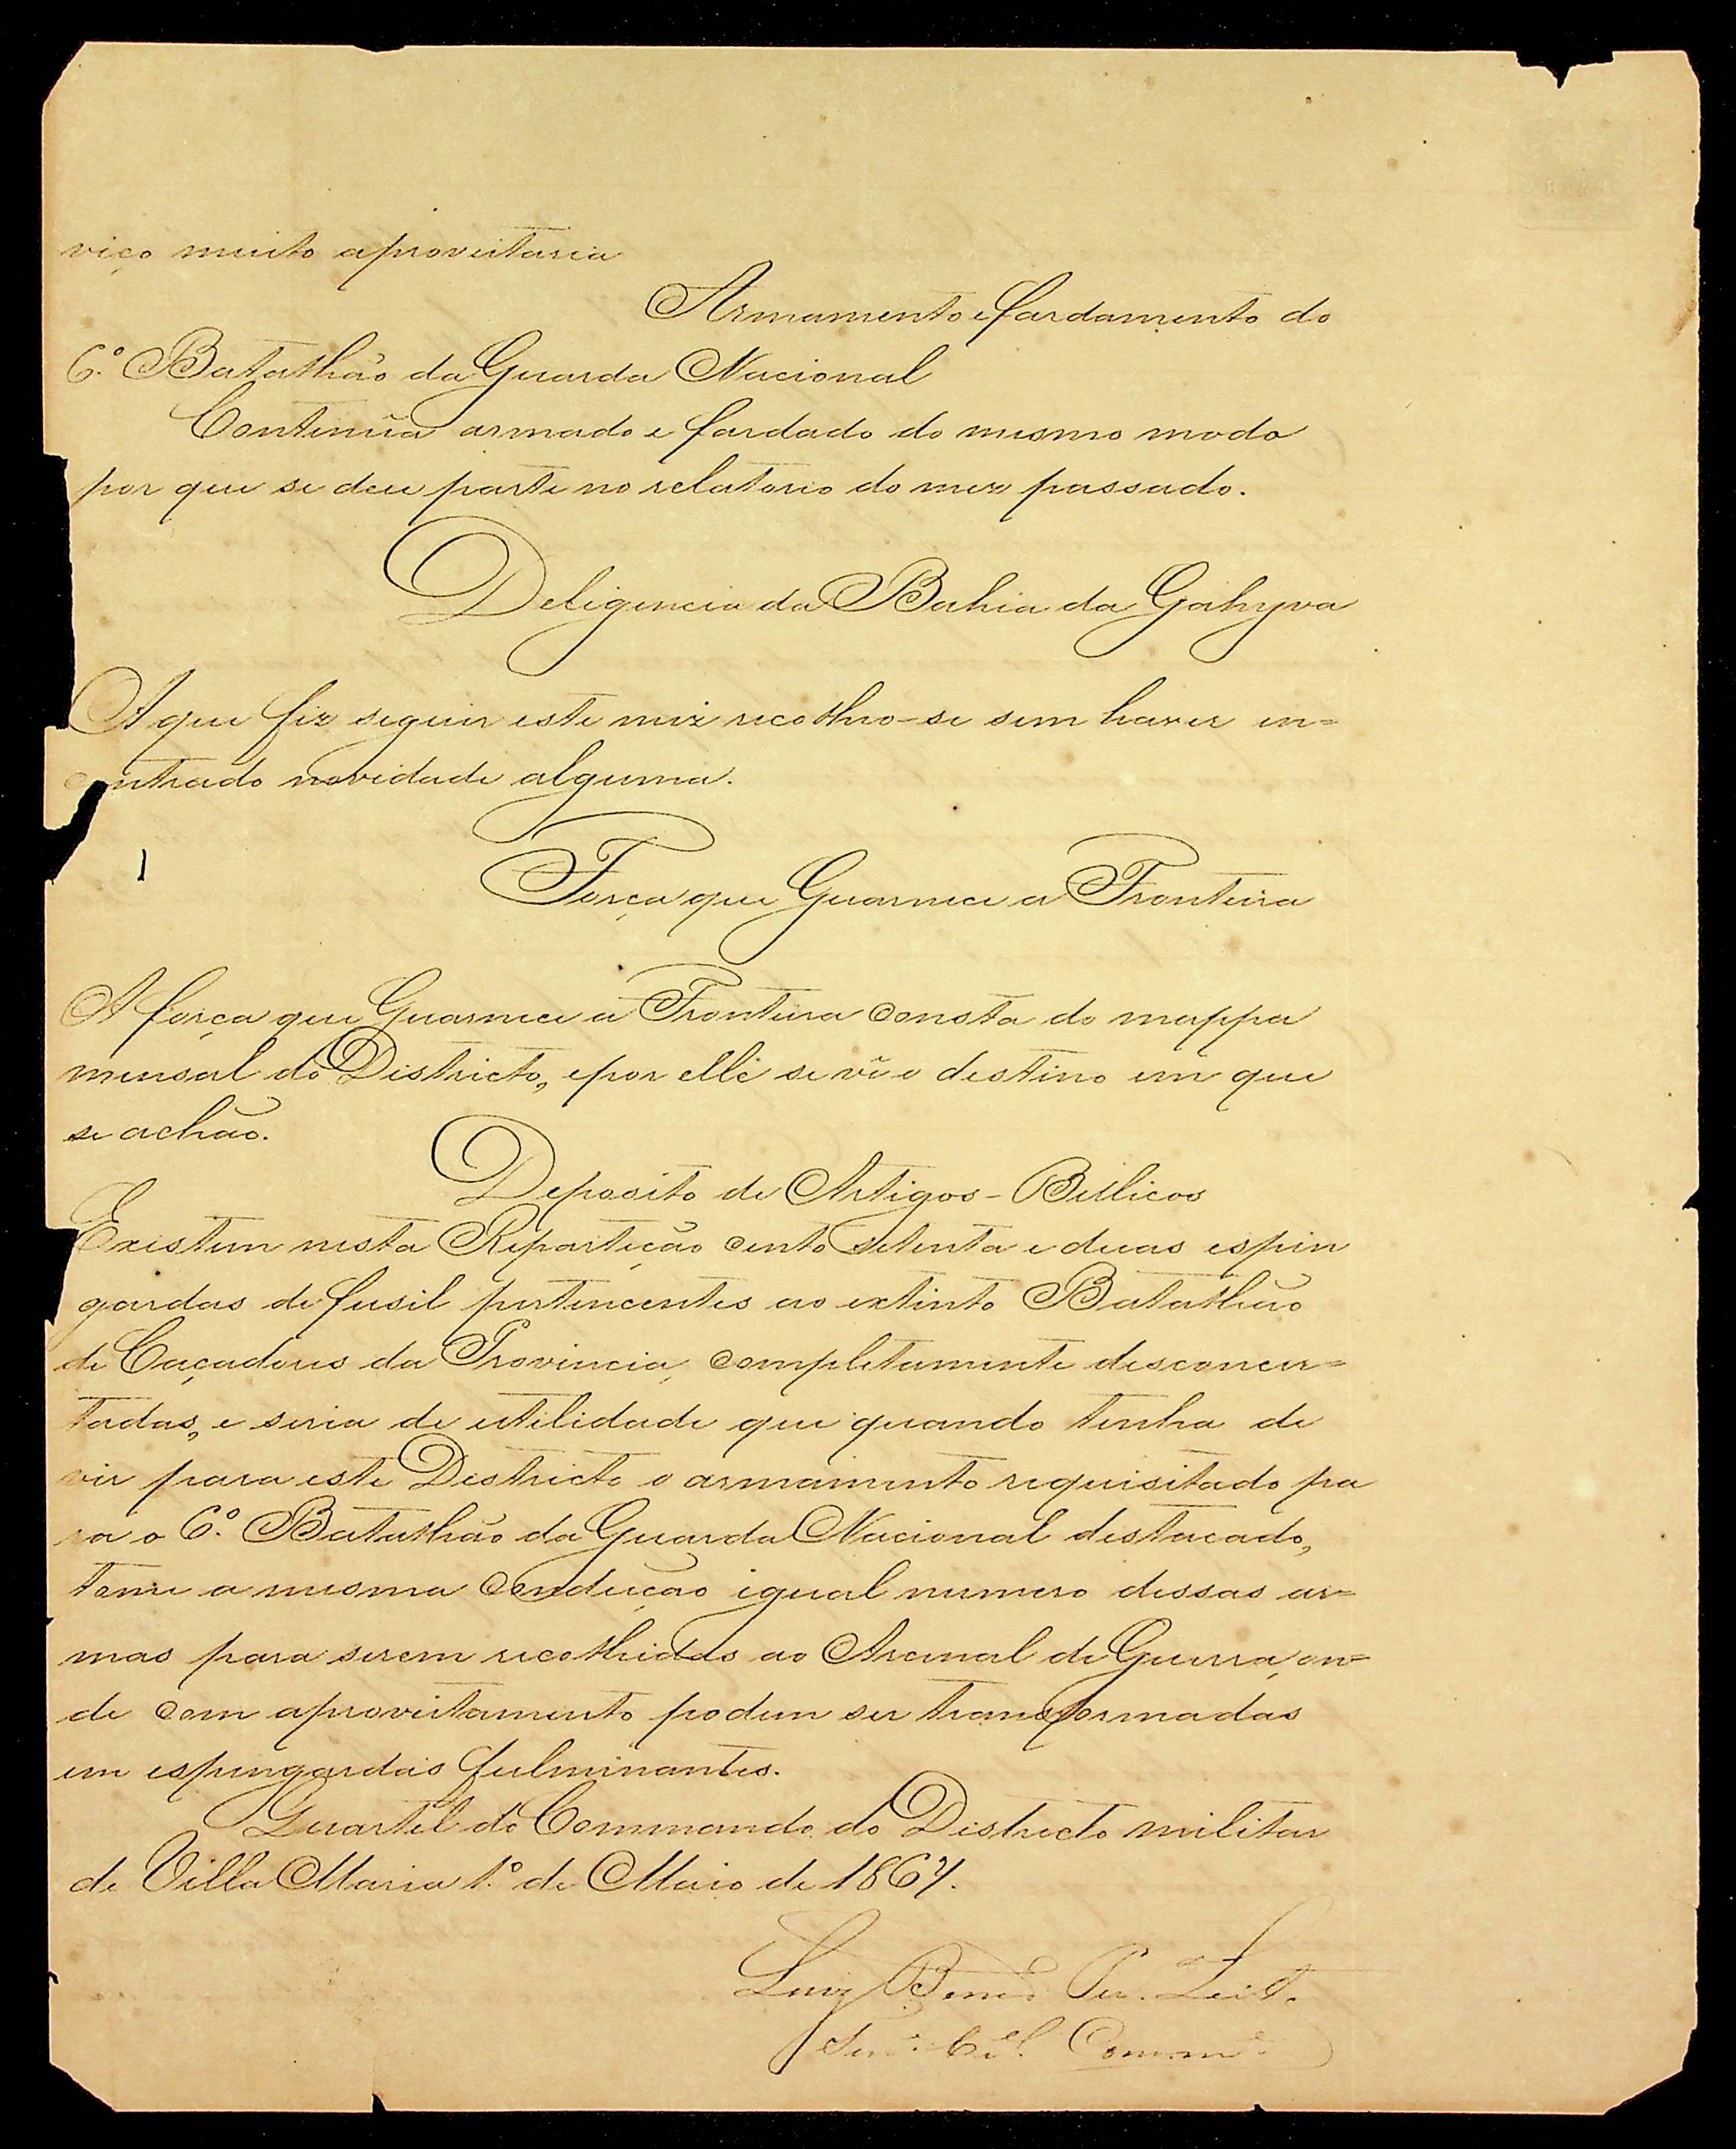 viço muito aproveitaria
Armamento e fardamento do
6º. Batalhão da Guarda Nacional
Continûa armado e fardado do mesmo modo
por que se deu parte no relatorio do mez passado.
Deligencia da Bahia da Gahyva
A que fiz seguir este mez recolheo-se sem haver en=
contrado novidade alguma.
Força que Guarnece a Fronteira
A força que Guarnece a Fronteira consta do mappa
mensal do Districto, e por elle se vê o destino em que
se achão.
Deposito de Artigos-Bellicos
Existem nesta Repartição cento setenta e duas espin
gardas de fusil pertencentes ao extinto Batalhão
de Caçadores da Provincia, completamente desconcer=
tadas, e seria de utilidade que quando tenha de
vir para este Districto o armamento requisitado pa
ra o 6º. Batalhão da Guarda Nacional destacado,
tome a mesma condução igual numero dessas ar=
mas para serem recolhidas ao Arcenal de Guerra, on=
de com aproveitamento podem ser transformadas
em espingardas fulminantes.
Quartel do Commando do Districto militar
de Villa Maria 1º. de Maio de 1864.
Luiz Bened Per. Leit.
Ten.e C.el Comm.e